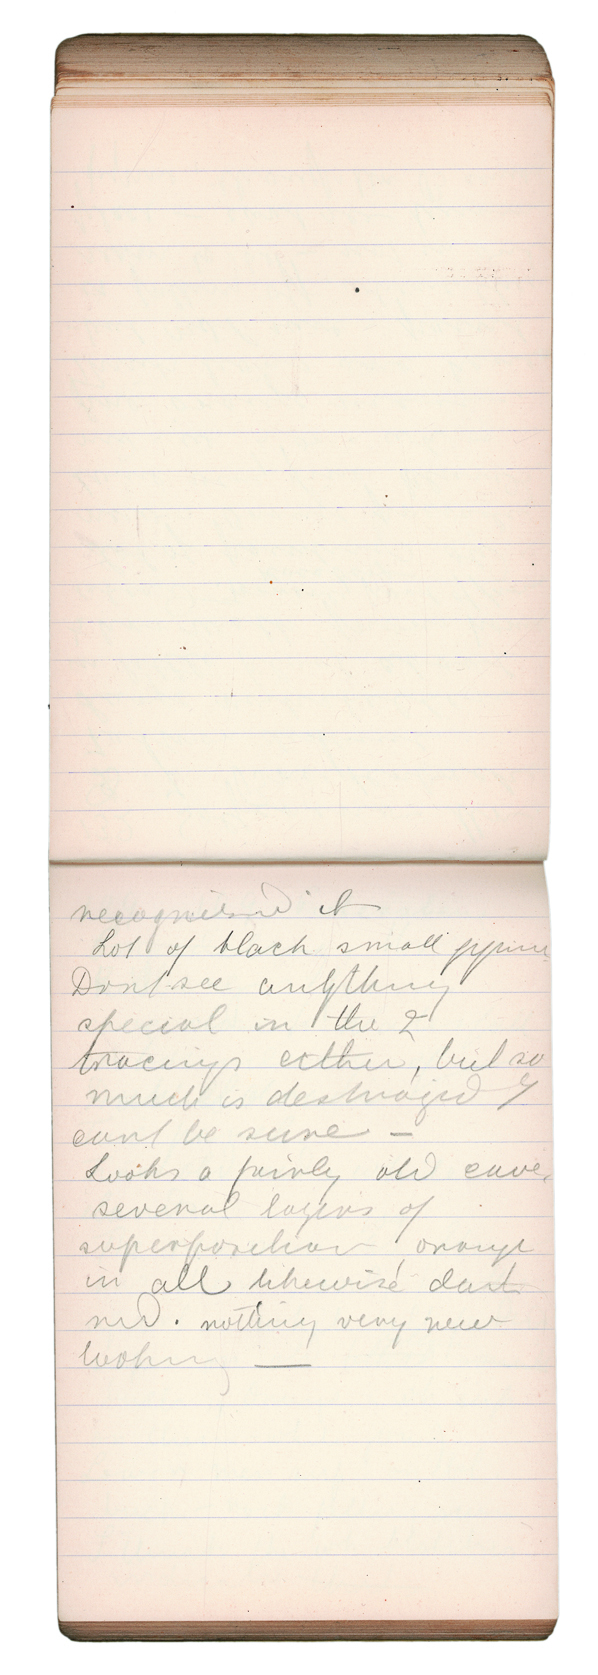 recognised it
Lot of black small figures
Dont see anything
special in the 2
tracings either, but so
much is destroyed I
cant be sure –
Looks a fairly old cave,
several layers of
superposition orange
in all likewise dark
red. nothing very new
looking —